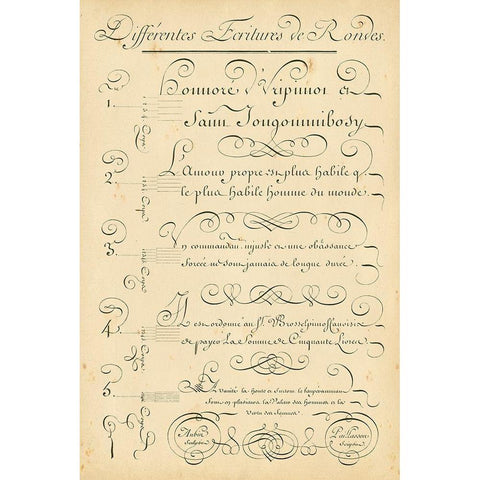 Différentes Ecritures de Rondes.
1.
Honnoré
Saint
2.
L'Amour propre est plus habile q
le plus habile homme du monde.
3.
Un commandant injuste et une obéissance
forcée ne sont jamais de longue durée.
4.
Il est ordonné au Sr.
de payer La Somme de Cinquante Livres
5.
La Vanité la honte et surtout le temperamment
font en plusieurs la Valeur des hommes et la
Vertu des femmes
Aubin Paillasson
Sculpsit Scripsit